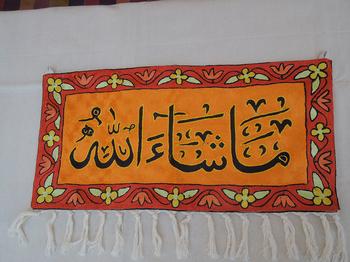 ما شاءَ اللّٰهُ